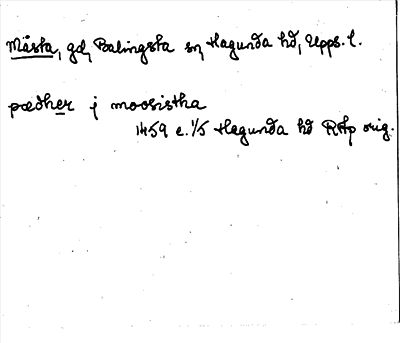 Mårsta, gd, Balingsta sn, Hagunda hd, Upps. l.
pædher j moosistha
1459 e. 1/5 Hagunda hd RAp orig.